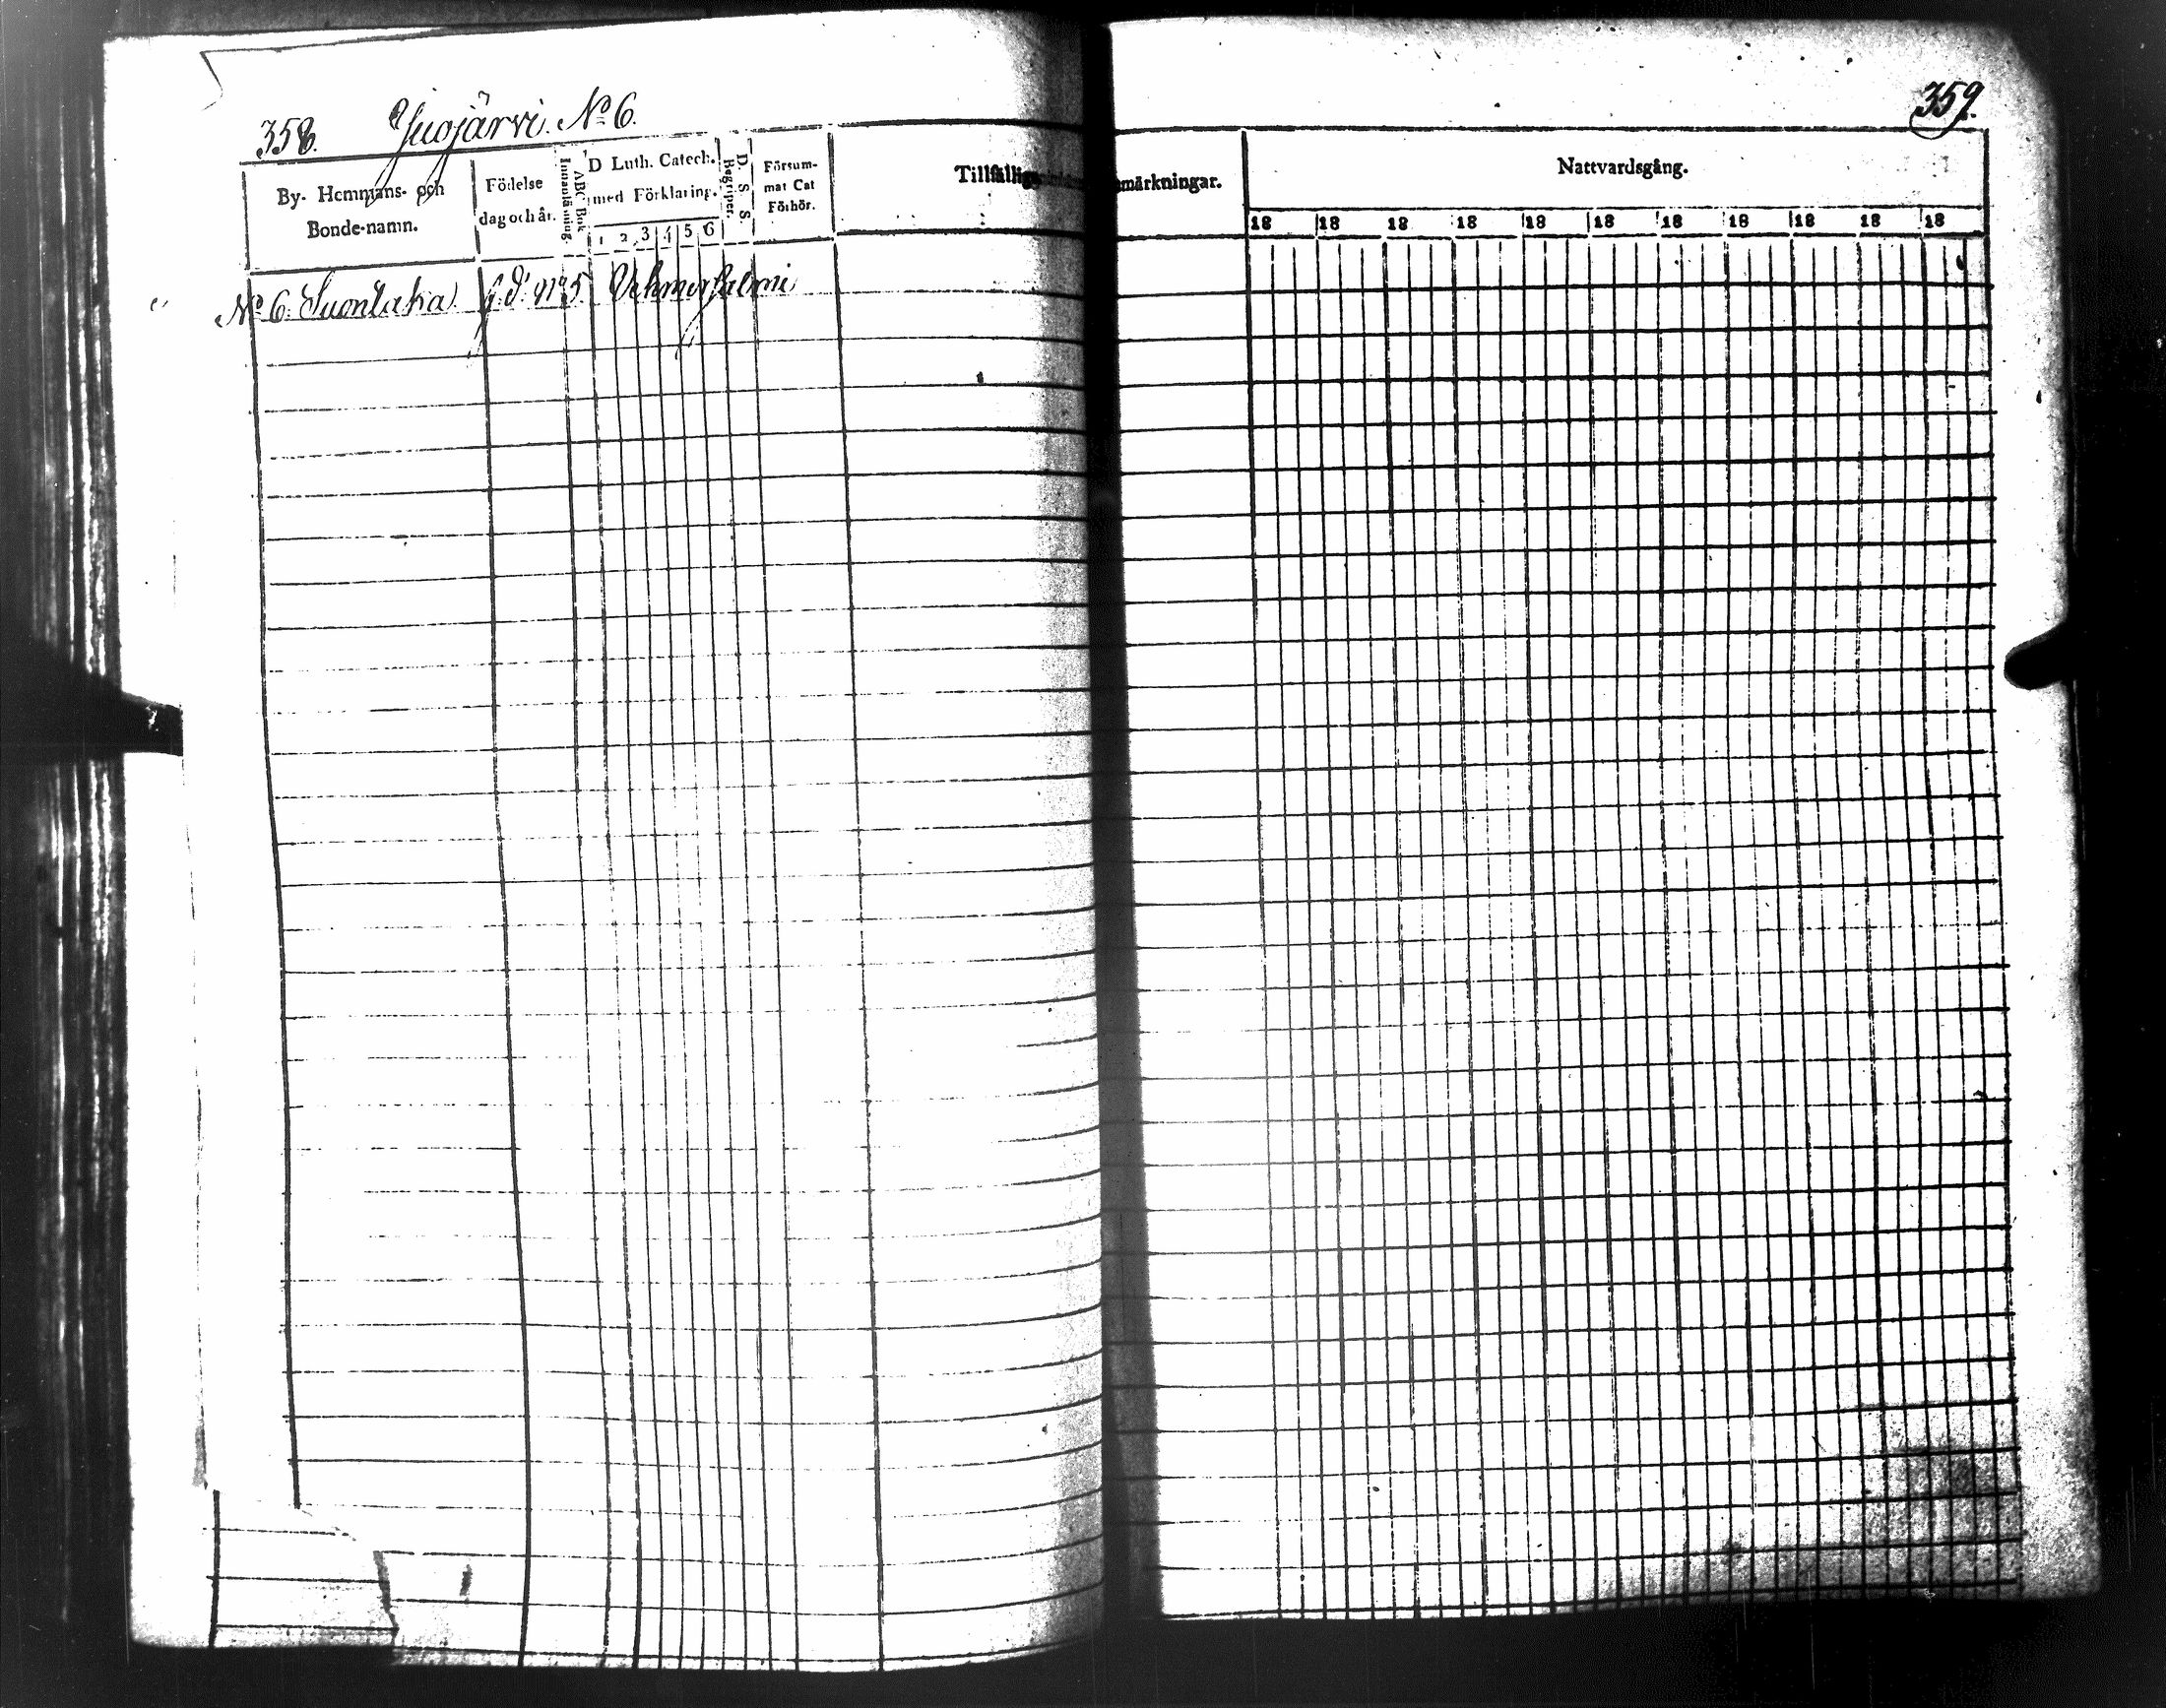 358. Juojärvi. No 6.
By- Hemmans- och Bonde-namn.
Födelse dag och år.
Innanläsning.
ABC Bok
D Luth. Catech. med Förklaring.
1 2 3 4 5 6
Begriper.
D. S. S.
Försum- mat Cat Förhör.
No 6. Suontaka No 5 Vehmersalmi
359.
märkningar.
Nattvardsgång.
18 18 18 18 18 18 18 18 18 18 18